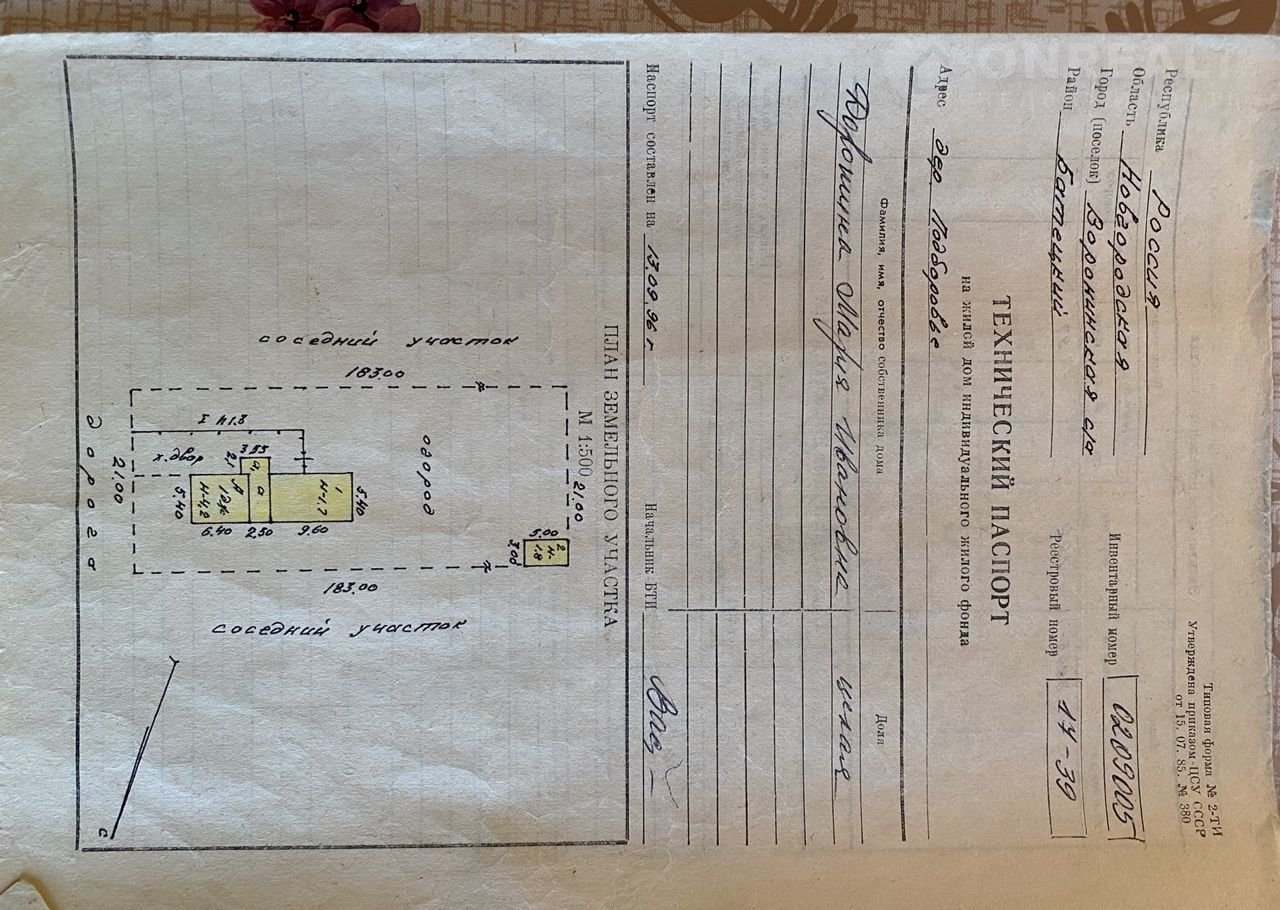 Типовая форма № 2-ТИ
Утверждена приказом ЦСУ СССР
от 15. 07. 85. № 380
Республика Россия
Область Новгородская
Город (поселок) Воронинская с/а
Район Батецкий
Инвентарный номер 0209005
Реестровый номер 14-39
ТЕХНИЧЕСКИЙ ПАСПОРТ
на жилой дом индивидуального жилого фонда
Адрес дер Подборовье
Фамилия, имя, отчество собственника дома
Доля
Дорошина Мария Ивановна целая
Паспорт составлен на 13.09.96 г
Начальник БТИ
ПЛАН ЗЕМЕЛЬНОГО УЧАСТКА
М 1:500
21.00
2
Н-1.8
5.00
3.00
соседний участок
183.00
огород
5.40
1
Н-1.7
9.60
а
а₁
2.50
3.55
2.1
А
1эж
Н-4,2
6.40
5.40
х.двор
21.00
183.00
соседний участок
дорога
с
ONREALT